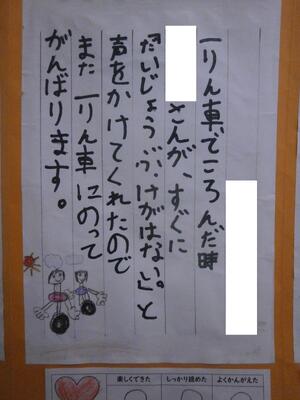 一りん車でころんだ時
さんが、すぐに
「だいじょうぶ、けがはない。」と
声をかけてくれたので
また一りん車にのって
がんばります。
楽しくできた
しっかり読めた
よくかんがえた